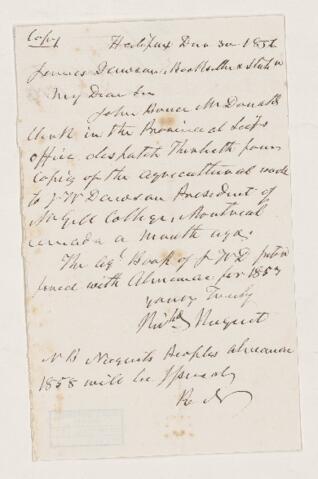 Copy Halifax Dec 30 1856
James Dawson, Bookseller & Stati
My Dear Sir
John Honer McDonald
Clerk in the Provincial Secy's
office despatch Thirtieth four
Copies of the Agricultural work
to J. W Dawson President of
McGill College, Montreal
Canada a month ago.
The Agl Book of J W D
with Almanac for 1857
yours Truly
Richd Nugent
N B Nugents Peoples almanac
1858 will be
R N